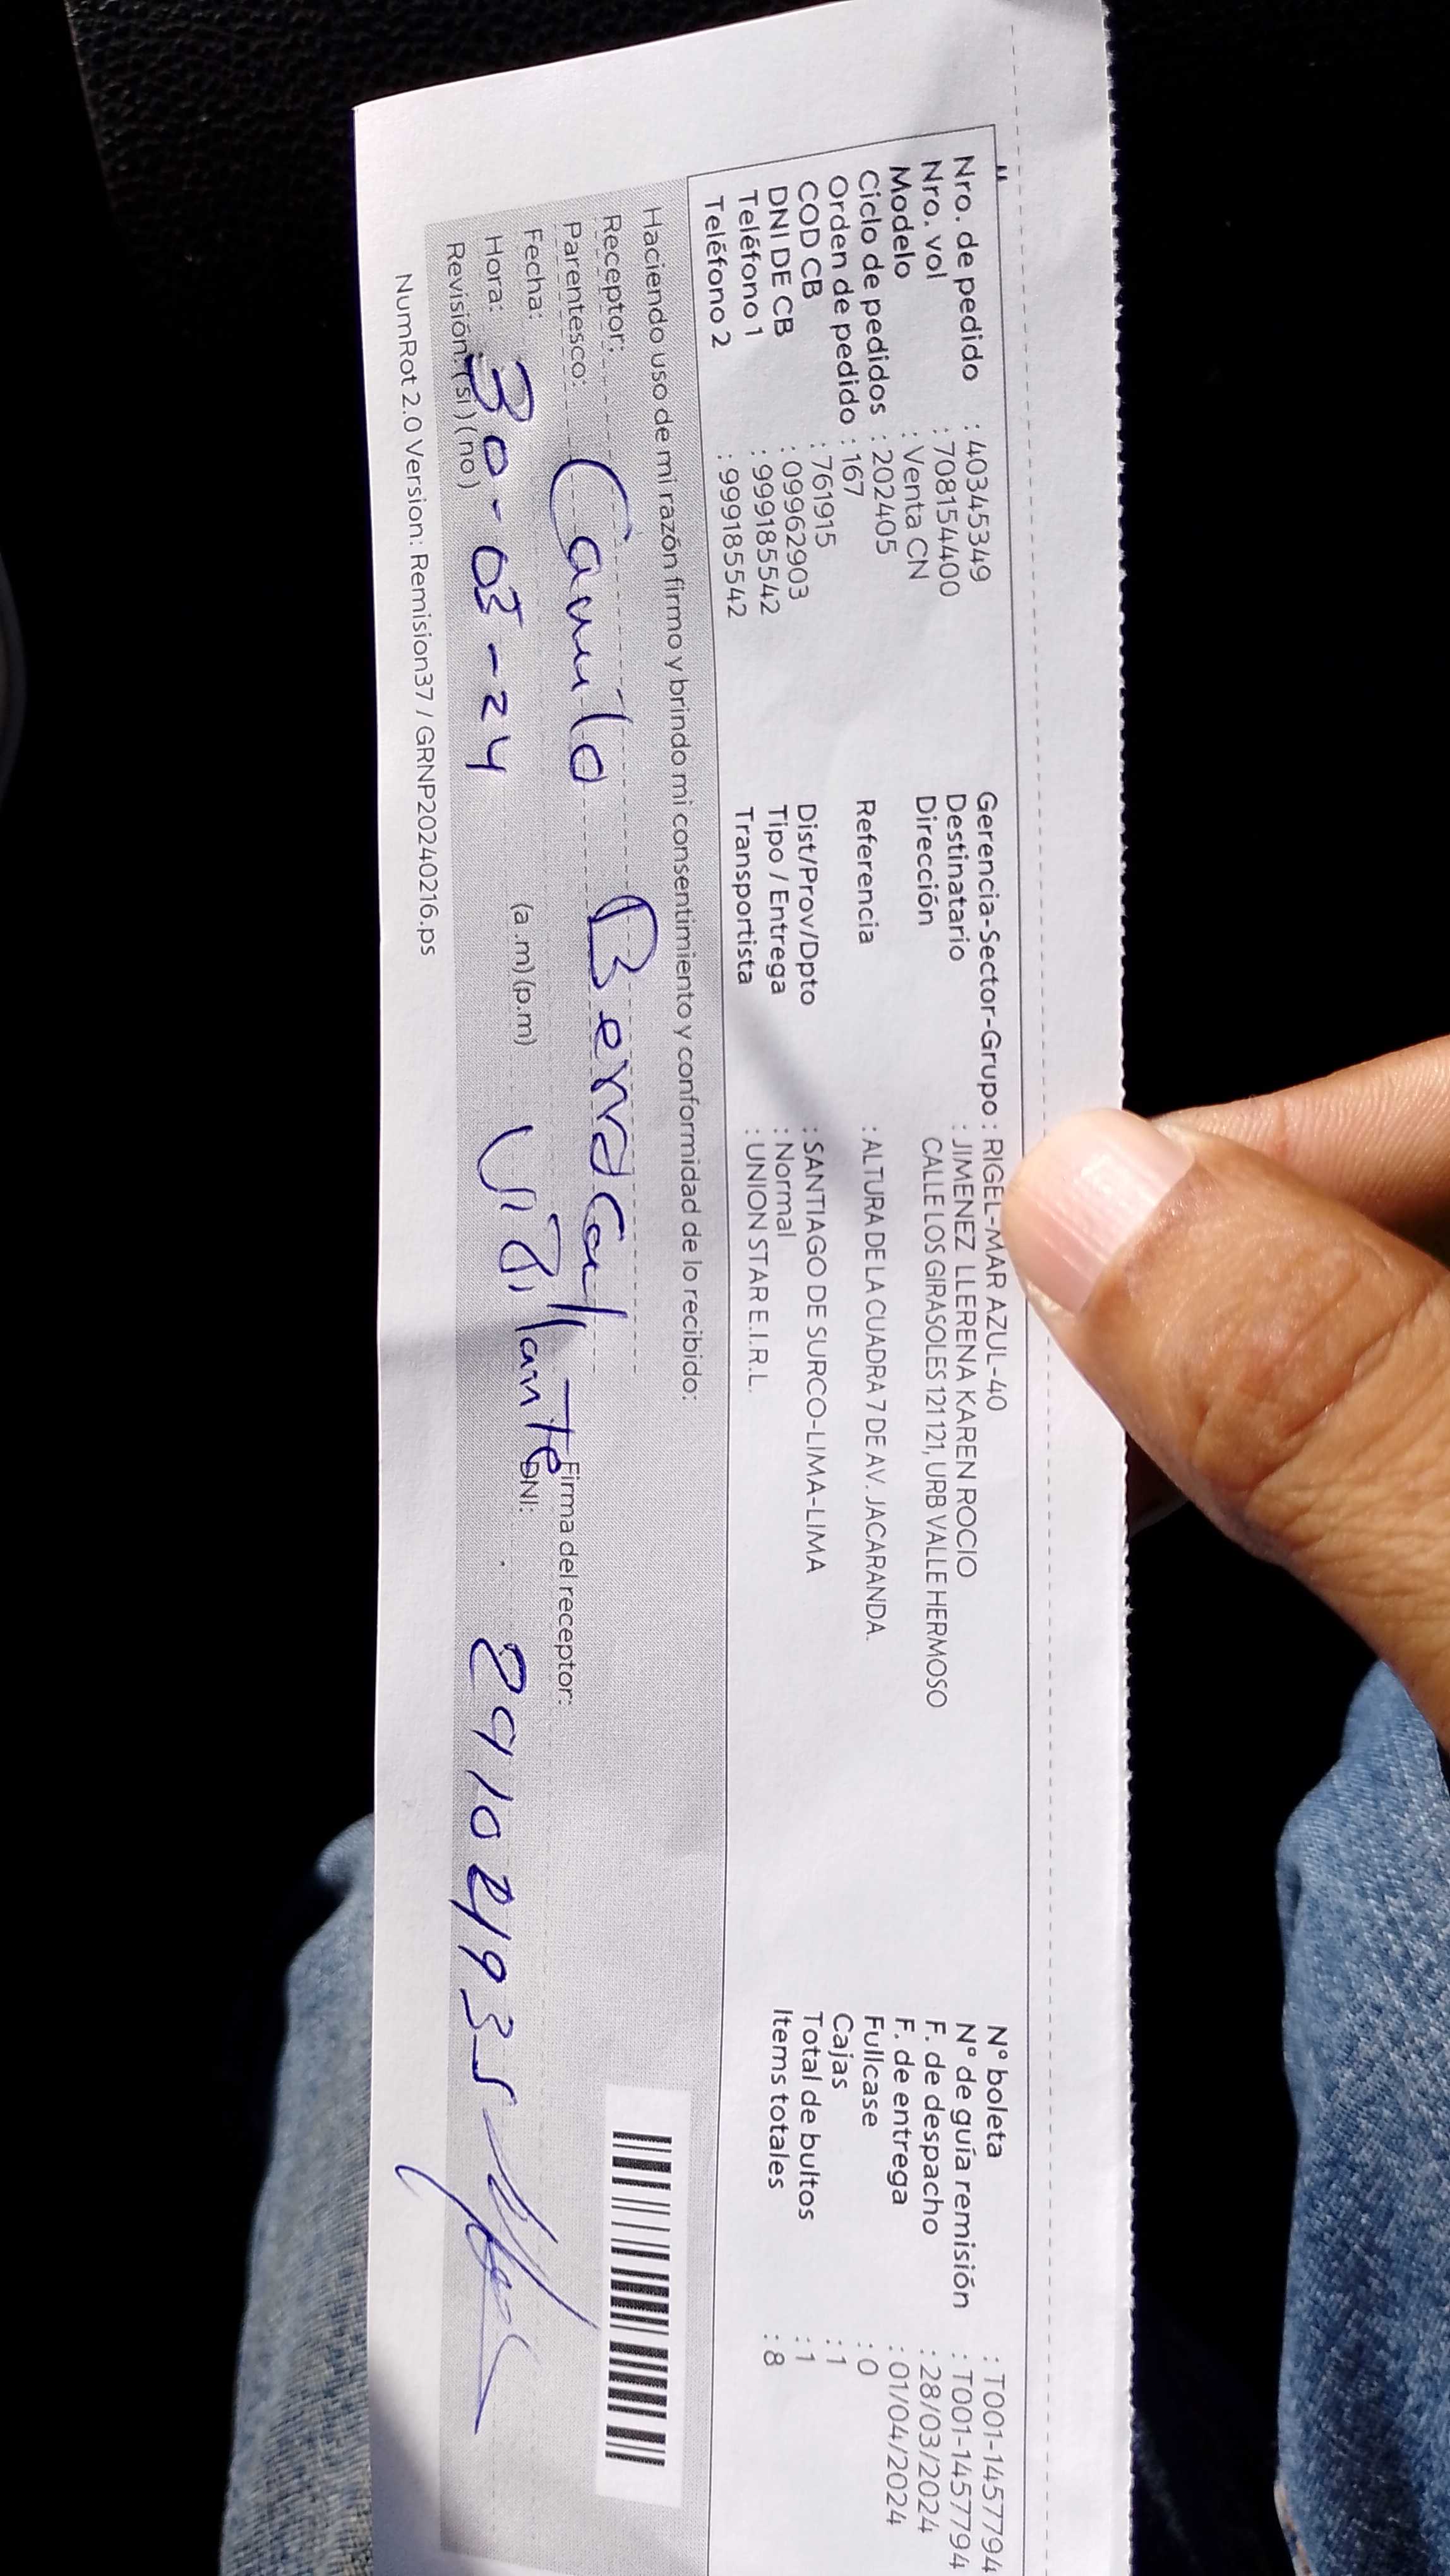 Nro. de pedido : 40345349
Nro. vol : 708154400
Modelo : Venta CN
Ciclo de pedidos : 202405
Orden de pedido : 167
COD CB : 761915
DNI DE CB : 09962903
Teléfono 1 : 999185542
Teléfono 2 : 999185542
Gerencia-Sector-Grupo : RIGEL-MAR AZUL-40
Destinatario : JIMENEZ LLERENA KAREN ROCIO
Dirección CALLE LOS GIRASOLES 121 121, URB VALLE HERMOSO
Referencia : ALTURA DE LA CUADRA 7 DE AV. JACARANDA.
Dist/Prov/Dpto : SANTIAGO DE SURCO-LIMA-LIMA
Tipo / Entrega : Normal
Transportista : UNION STAR E.I.R.L.
N° boleta : T001-1457794
N° de guía remisión : T001-1457794
F. de despacho : 28/03/2024
F. de entrega : 01/04/2024
Fullcase : 0
Cajas : 1
Total de bultos : 1
Items totales : 8
Haciendo uso de mi razón firmo y brindo mi consentimiento y conformidad de lo recibido:
Receptor:
Parentesco: Camilo
Fecha:
Hora: 30-03-24 (a.m)(p.m) Vigilante
Revisión: (si) (no)
Firma del receptor:
DNI:
NumRot 2.0 Version: Remision37 / GRNP20240216.ps